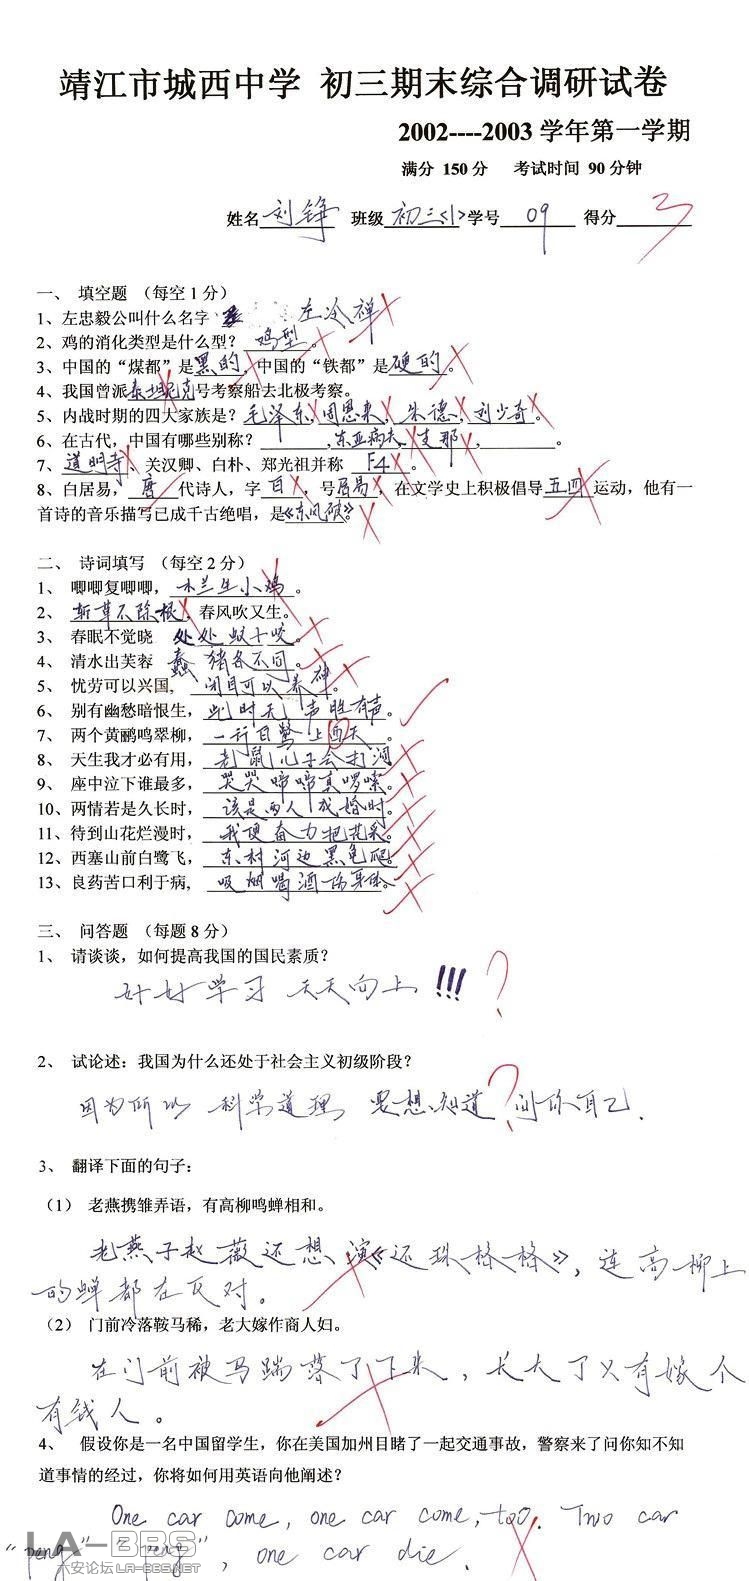 靖江市城西中学 初三期末综合调研试卷
2002----2003 学年第一学期
满分 150 分 考试时间 90 分钟
姓名 刘铮 班级 初三<1> 学号 09 得分 3
一、 填空题 (每空 1 分)
1、左忠毅公叫什么名字 左冷禅
2、鸡的消化类型是什么型? 鸡型。
3、中国的“煤都”是黑的,中国的“铁都”是硬的。
4、我国曾派泰坦尼克号考察船去北极考察。
5、内战时期的四大家族是?毛泽东,周恩来,朱德,刘少奇。
6、在古代,中国有哪些别称? ,东亚病夫,支那, 。
7、道明寺、关汉卿、白朴、郑光祖并称 F4。
8、白居易, 唐 代诗人,字 白,号居易,在文学史上积极倡导五四运动,他有一
首诗的音乐描写已成千古绝唱,是《东风破》
二、 诗词填写 (每空 2 分)
1、 唧唧复唧唧, 木兰生小鸡。
2、 斩草不除根,春风吹又生。
3、 春眠不觉晓 处处蚊子咬。
4、 清水出芙蓉 蠢猪各不同。
5、 忧劳可以兴国, 闭目可以养神。
6、 别有幽愁暗恨生,此时无声胜有声。
7、 两个黄鹂鸣翠柳,一行白鹭上西天。
8、 天生我才必有用,老鼠儿子会打洞
9、 座中泣下谁最多, 哭哭啼啼真啰嗦。
10、两情若是久长时, 该是两人成婚时。
11、待到山花烂漫时, 我便奋力把花采。
12、西塞山前白鹭飞, 东村河边黑龟爬。
13、良药苦口利于病, 吸烟喝酒伤身体。
三、 问答题 (每题 8 分)
1、 请谈谈,如何提高我国的国民素质?
好好学习 天天向上 !!! ?
2、 试论述:我国为什么还处于社会主义初级阶段?
因为所以 科学道理 要想知道 问你自己. ?
3、 翻译下面的句子:
(1) 老燕携雏弄语,有高柳鸣蝉相和。
老燕子赵薇还想演《还珠格格》,连高柳上
的蝉都在反对。
(2) 门前冷落鞍马稀,老大嫁作商人妇。
在门前被马踹落了下来,长大了又有嫁个
有钱人。
4、 假设你是一名中国留学生,你在美国加州目睹了一起交通事故,警察来了问你知不知
道事情的经过,你将如何用英语向他阐述?
One car come, one car come, too. Two car
“peng” “peng”, one car die.
LA-BBS
六安论坛 LA-BBS.NET